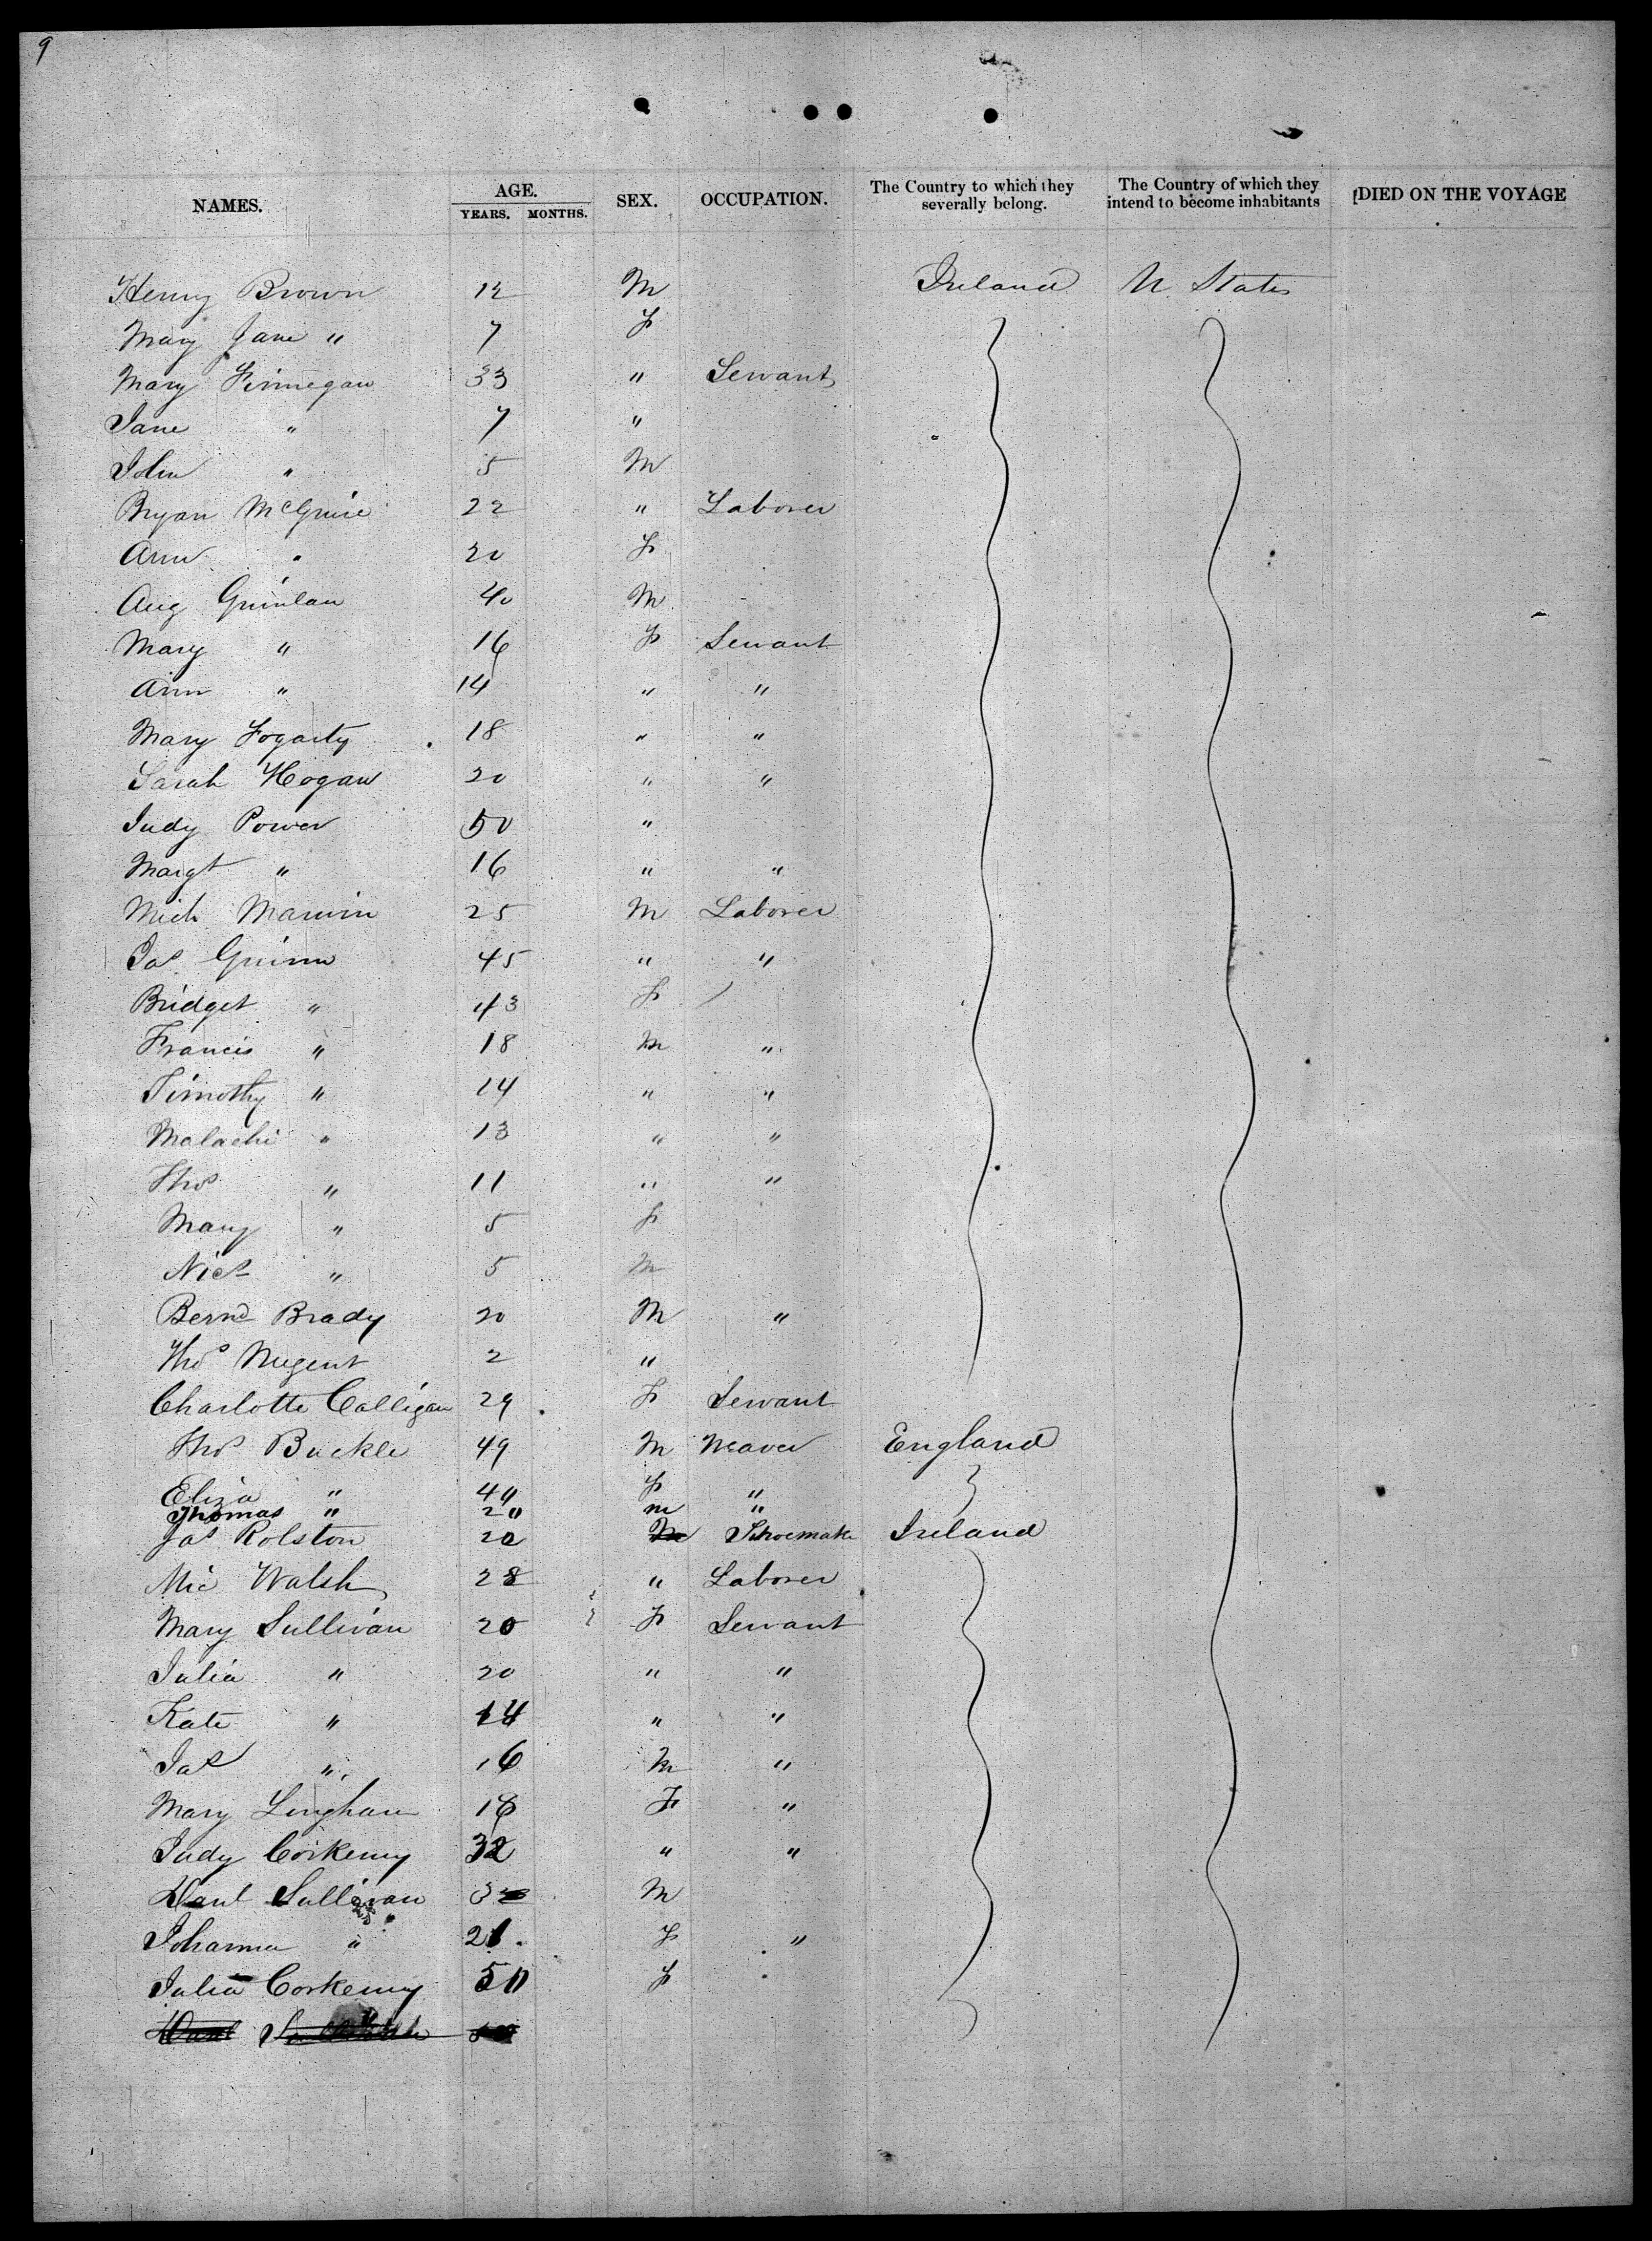 9
NAMES. AGE. YEARS. MONTHS. SEX. OCCUPATION. The Country to which they severally belong. The Country of which they intend to become inhabitants DIED ON THE VOYAGE
Henry Brown 12 M Ireland U. States
Mary Jane " 7 F
Mary Finnegan 33 " Servant
Jane " 7 "
John " 5 M
Bryan McGuire 22 " Laborer
Ann " 20 F
Aug Quinlan 40 M
Mary " 16 F Servant
Ann " 14 " "
Mary Fogarty 18 " "
Sarah Hogan 20 " "
Judy Power 50 "
Margt " 16 " "
Mich 25 M Laborer
Jas Guinn 45 " "
Bridget " 43 F
Francis " 18 M "
Timothy " 14 " "
Malachi " 13 " "
Thos " 11 " "
Mary " 5 F
Nics " 5 M
Bernd Brady 20 M "
Thos Nugent 2 "
Charlotte Calligan 29 F Servant
Thos Buckle 49 M Weaver England
Eliza " F "
Thomas " 20 m "
Jas Rolston 20 M Shoemake Ireland
Mic Walsh 28 " Laborer
Mary Sullivan 20 F Servant
Julia " 20 " "
Kate " 14 " "
Jas " 16 M "
Mary Lingham F "
Judy Corkeny 32 " "
Danl Sullivan M
Johanna " 21 F "
Julia Corkeny 50 F